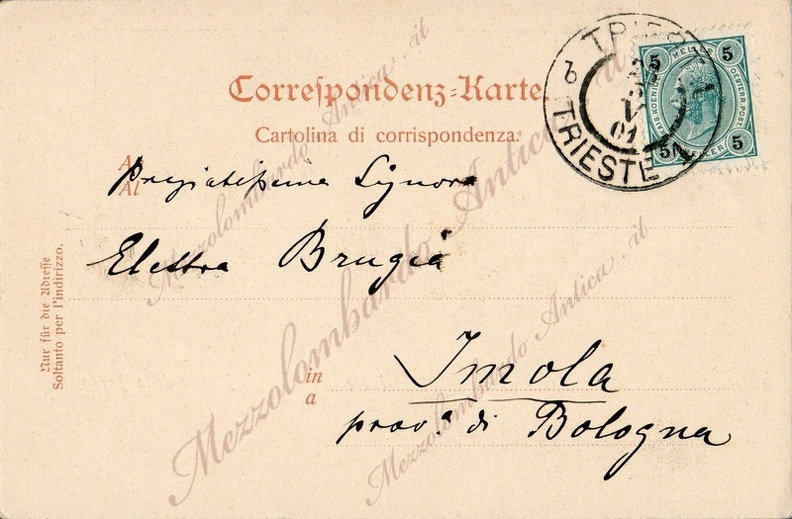 Correspondenz-Karte
Cartolina di corrispondenza.
TRIEST 1
V
01
TRIESTE 1
5 HELLER 5
5 HELLER 5
OESTERR. POST
An
Al
Pregiatissima Signora
Elettra Brugia
in
a
Imola
prov.a di Bologna
Nur für die Adresse
Soltanto per l'indirizzo.
Mezzolombardo Antica .it
Mezzolombardo Antica .it
Mezzolombardo Antica .it